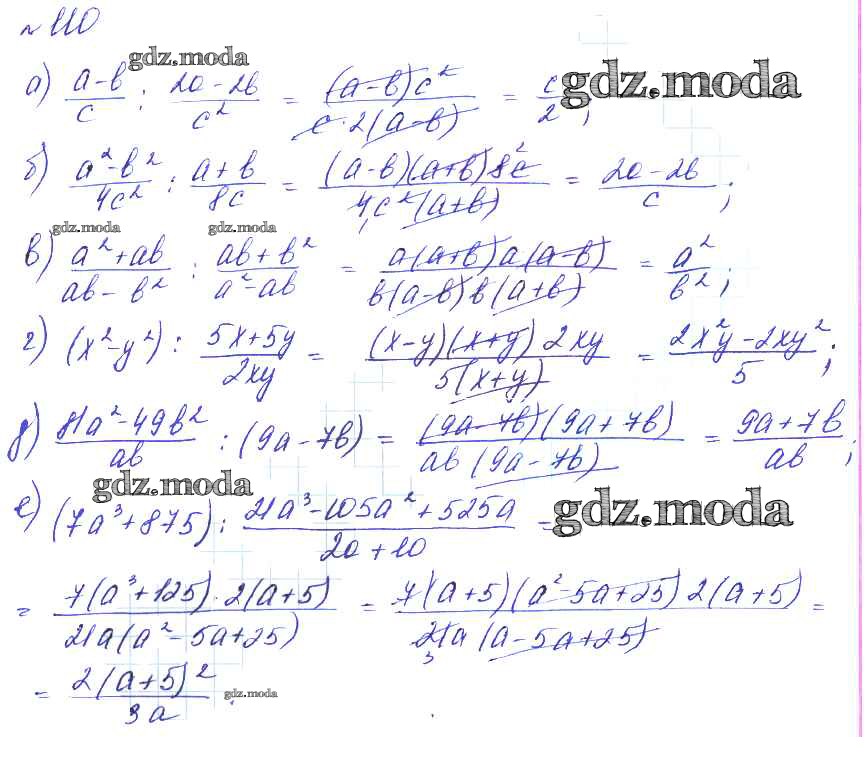 № 110
gdz.moda
а) (a-b)/c : (2a-2b)/c² = ((a-b)c²)/(c·2(a-b)) = c/2;
gdz.moda
б) (a²-b²)/(4c²) : (a+b)/(8c) = ((a-b)(a+b)8c)/(4c²(a+b)) = (2a-2b)/c;
gdz.moda gdz.moda
в) (a²+ab)/(ab-b²) : (ab+b²)/(a²-ab) = (a(a+b)a(a-b))/(b(a-b)b(a+b)) = a²/b²;
г) (x²-y²) : (5x+5y)/(2xy) = ((x-y)(x+y)2xy)/(5(x+y)) = (2x²y-2xy²)/5;
д) (81a²-49b²)/(ab) : (9a-7b) = ((9a-7b)(9a+7b))/(ab(9a-7b)) = (9a+7b)/(ab);
gdz.moda
е) (7a³+875) : (21a³-105a²+525a)/(2a+10) =
gdz.moda
= (7(a³+125)·2(a+5))/(21a(a²-5a+25)) = (7(a+5)(a²-5a+25)2(a+5))/(21a(a-5a+25)) =
= (2(a+5)²)/(3a).
gdz.moda